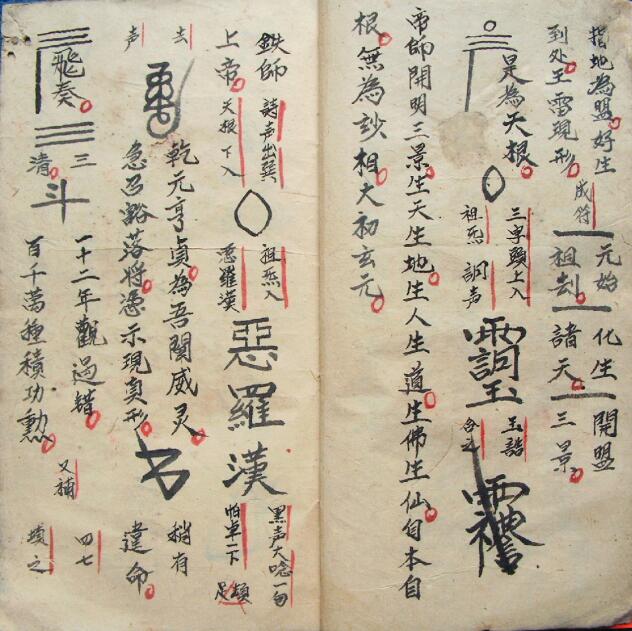 指地為盟好生
到处王雷現形
成符
一元始 化生 開盟
一祖刦 諸天 三景
是為天根
三字頭上入
祖炁 詞声
玉誥
合之
帝師開明三景生天生地生人生道生佛生仙自本自
根無為玅相大初玄元
鉄師
上帝
詩声出巽
天根下入
祖炁入
惡羅漢
惡羅漢
黑声大唸一句
怕卓二下
頓足
去
声
乾元亨貞為吾関威灵
急召豁落將憑示現真形
稍有
違命
飛奏
三
清
斗
一十二年觀過錯
百千萬種積功勲
又補
四七